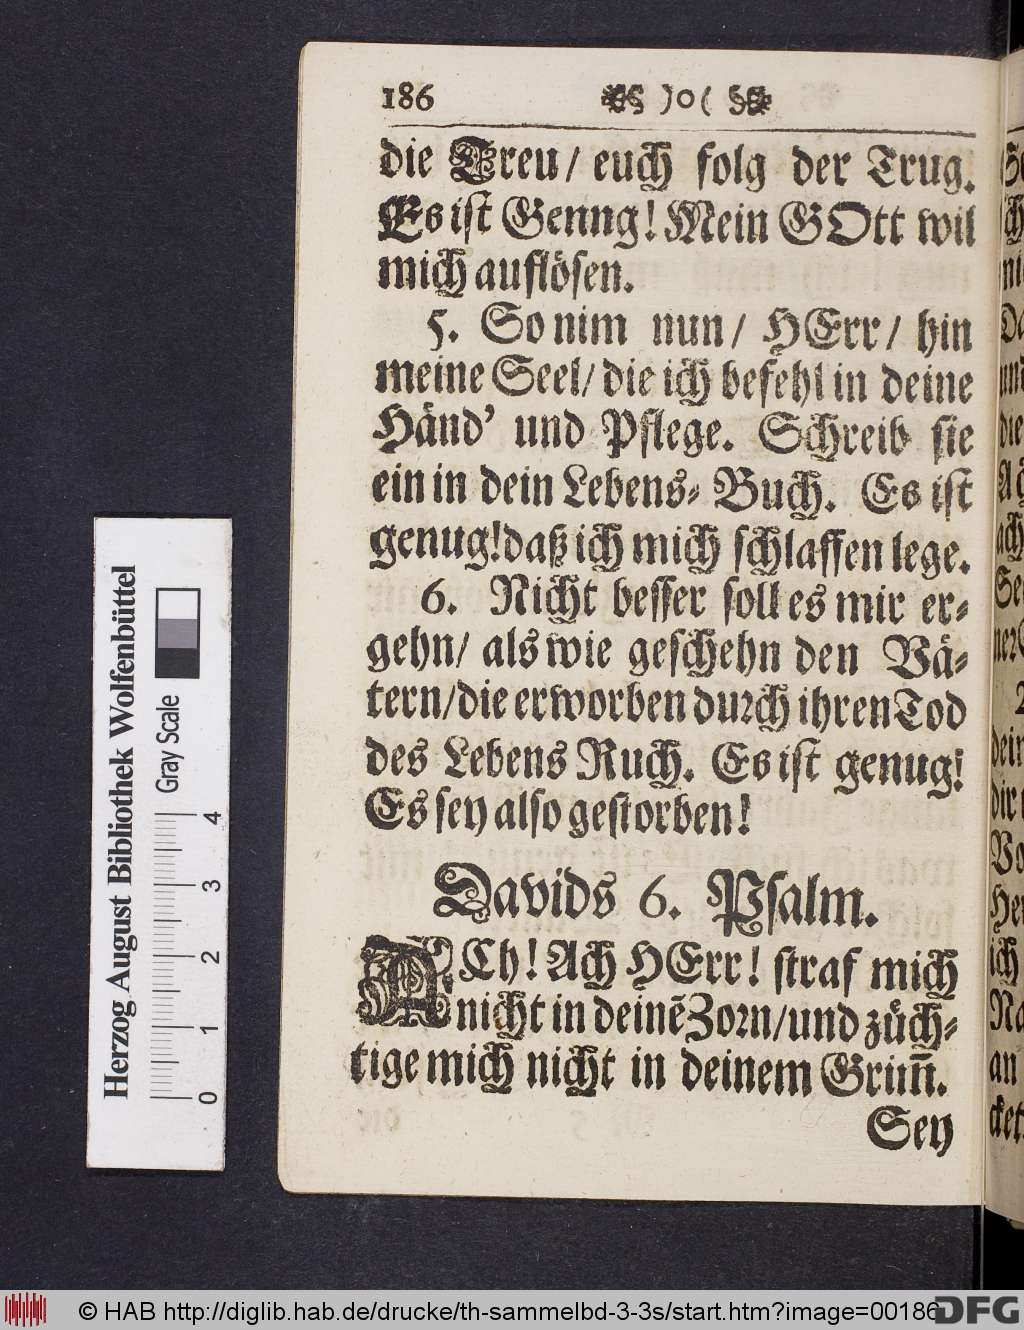 186 )o(
die Treu/ euch folg der Trug.
Es ist Genng! Mein GOtt wil
mich auflösen.
5. So nim nun/ HErr/ hin
meine Seel/ die ich befehl in deine
Händ' und Pflege. Schreib sie
ein in dein Lebens- Buch. Es ist
genug! daß ich mich schlaffen lege.
6. Nicht besser soll es mir er-
gehn/ als wie geschehn den Vä-
tern/ die erworben durch ihren Tod
des Lebens Ruch. Es ist genug!
Es sey also gestorben!
Davids 6. Psalm.
ACh! Ach HErr! straf mich
nicht in deinẽ Zorn/ und züch-
tige mich nicht in deinem Grim̃.
Sey
Herzog August Bibliothek Wolfenbüttel
Gray Scale
0 1 2 3 4
© HAB http://diglib.hab.de/drucke/th-sammelbd-3-3s/start.htm?image=00186
DFG